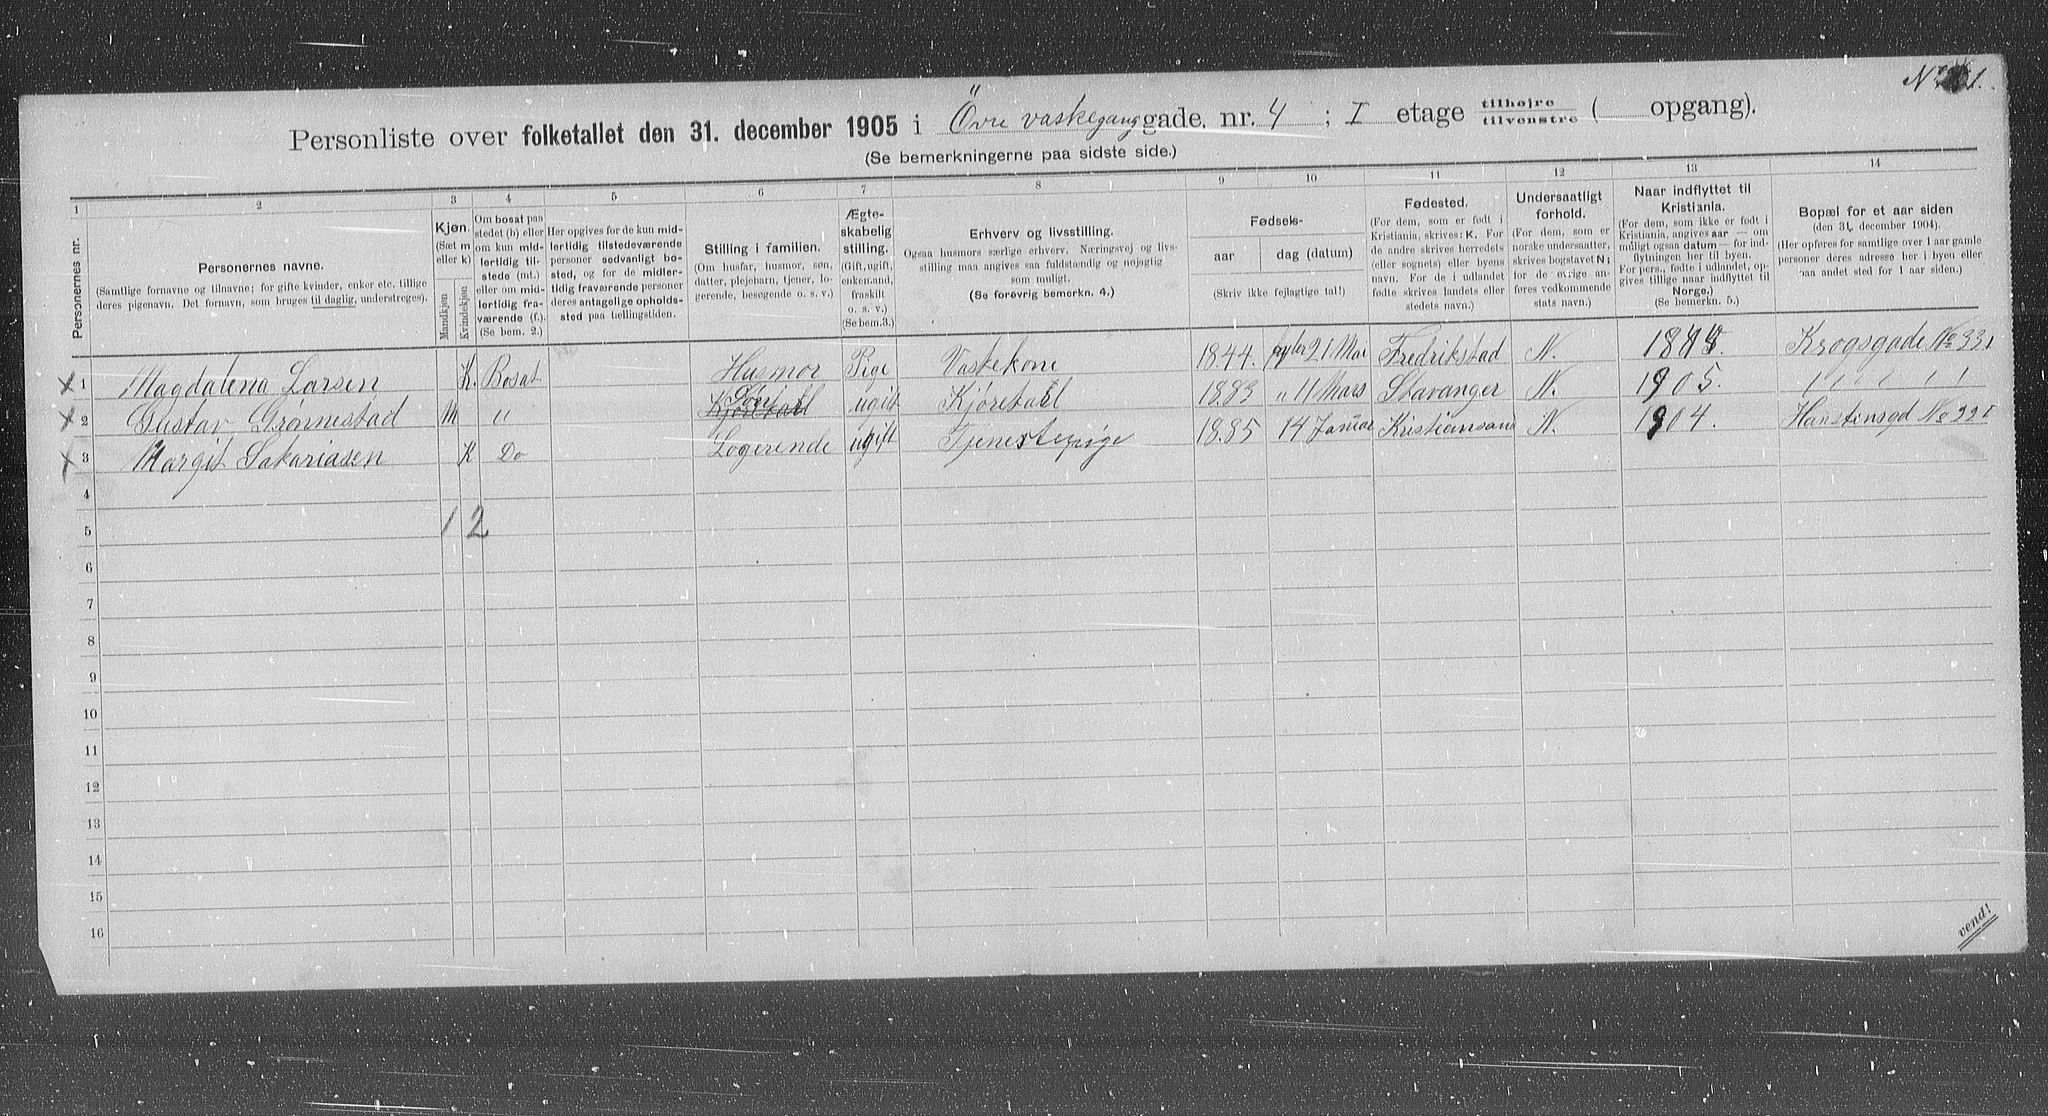 No 1.
Personliste over folketallet den 31. december 1905 i Övre vaskegang gade, nr. 4 ; I etage tilhøjre tilvenstre ( opgang).
(Se bemerkningerne paa sidste side.)
1 2 3 4 5 6 7 8 9 10 11 12 13 14
Personernes nr.
Personernes navne.
(Samtlige fornavne og tilnavne; for gifte kvinder, enker etc. tillige
deres pigenavn. Det fornavn, som bruges til daglig, understreges).
Kjøn.
(Sæt m
eller k)
Mandkjøn
Kvindekjøn
Om bosat paa
stedet (b) eller
om kun mid-
lertidig til-
stede (mt.)
eller om mid-
lertidig fra-
værende (f.).
(Se bem. 2.)
Her opgives for de kun mid-
lertidig tilstedeværende
personer sedvanligt bo-
sted, og for de midler-
tidig fraværende personer
deres antagelige opholds-
sted paa tællingstiden.
Stilling i familien.
(Om husfar, husmor, søn,
datter, plejebarn, tjener, lo-
gerende, besøgende o. s. v.)
Ægte-
skabelig
stilling.
(Gift, ugift,
enkemand,
fraskilt
o. s. v.)
(Se bem.3.)
Erhverv og livsstilling.
Ogsaa husmors særlige erhverv. Næringsvej og livs-
stilling maa angives saa fuldstændig og nøjagtig
som muligt.
(Se forøvrig bemerkn. 4.)
Fødsels-
aar
dag (datum)
(Skriv ikke fejlagtige tal!)
Fødested.
(For dem, som er født i
Kristiania, skrives: K. For
de andre skrives herredets
(eller sognets) eller byens
navn. For de i udlandet
fødte skrives landets eller
stedets navn.)
Undersaatligt
forhold.
(For dem, som er
norske undersaatter,
skrives bogstavet N;
for de øvrige an-
føres vedkommende
stats navn.)
Naar indflyttet til
Kristiania.
(For dem, som ikke er født i
Kristiania, angives aar — om
muligt ogsaa datum — for ind-
flytningen her til byen.
For pers., fødte i udlandet, op-
gives tillige naar indflyttet til
Norge.)
(Se bemerkn. 5.)
Bopæl for et aar siden
(den 31. december 1904).
(Her opføres for samtlige over 1 aar gamle
personer deres adresse her i byen eller
paa andet sted for 1 aar siden.)
x 1 Magdalena Larsen K. Bosat Husmor Pige Vaskekone 1844. 21 Mai Fredrikstad N. Krogsgade No 33 1
x 2 Gustav Grønnestad M " Logi ugift Kjørekarl 1883 " 11 Mars Stavanger N. 1905. 1 1 1 1 1 1
x 3 Margit Sakariasen K Do Logerende ugift Tjenestepige 1885 14 Januar Kristiansand N. 1904. Hanstensgd No 22 I
4
5 1 2
6
7
8
9
10
11
12
13
14
15
16
vend!